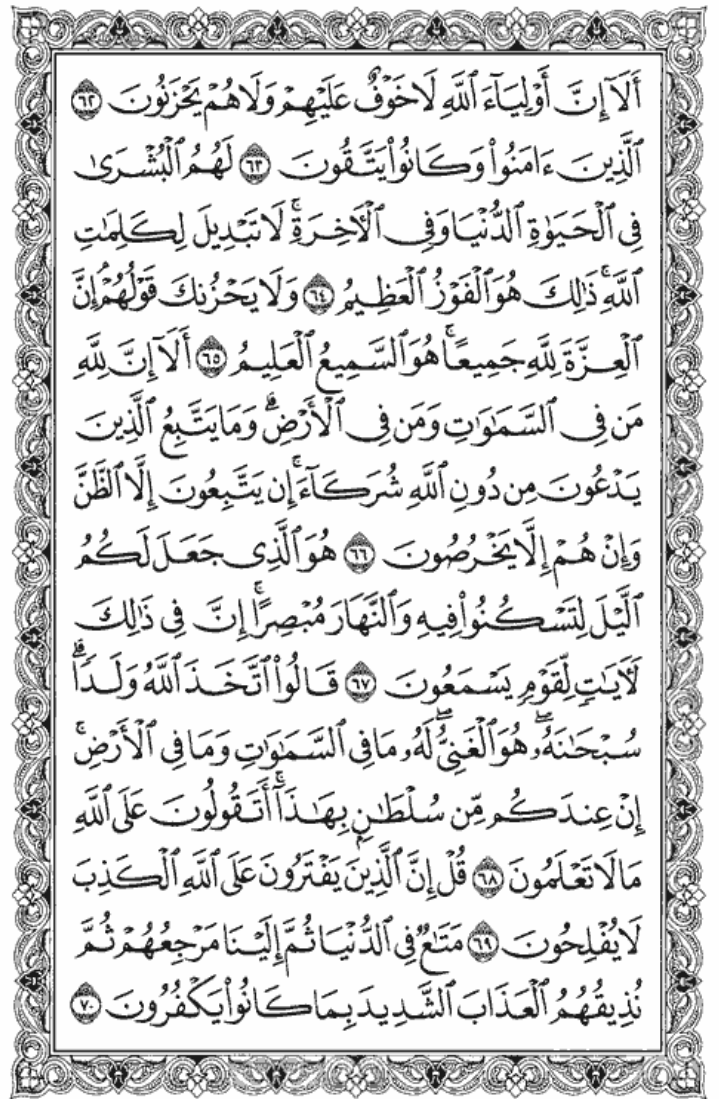 أَلَآ إِنَّ أَوْلِيَآءَ ٱللَّهِ لَا خَوْفٌ عَلَيْهِمْ وَلَا هُمْ يَحْزَنُونَ ٦٢
ٱلَّذِينَ ءَامَنُوا۟ وَكَانُوا۟ يَتَّقُونَ ٦٣ لَهُمُ ٱلْبُشْرَىٰ
فِى ٱلْحَيَوٰةِ ٱلدُّنْيَا وَفِى ٱلْـَٔاخِرَةِ ۚ لَا تَبْدِيلَ لِكَلِمَٰتِ
ٱللَّهِ ۚ ذَٰلِكَ هُوَ ٱلْفَوْزُ ٱلْعَظِيمُ ٦٤ وَلَا يَحْزُنكَ قَوْلُهُمْ ۘ إِنَّ
ٱلْعِزَّةَ لِلَّهِ جَمِيعًا ۚ هُوَ ٱلسَّمِيعُ ٱلْعَلِيمُ ٦٥ أَلَآ إِنَّ لِلَّهِ
مَن فِى ٱلسَّمَٰوَٰتِ وَمَن فِى ٱلْأَرْضِ ۗ وَمَا يَتَّبِعُ ٱلَّذِينَ
يَدْعُونَ مِن دُونِ ٱللَّهِ شُرَكَآءَ ۚ إِن يَتَّبِعُونَ إِلَّا ٱلظَّنَّ
وَإِنْ هُمْ إِلَّا يَخْرُصُونَ ٦٦ هُوَ ٱلَّذِى جَعَلَ لَكُمُ
ٱلَّيْلَ لِتَسْكُنُوا۟ فِيهِ وَٱلنَّهَارَ مُبْصِرًا ۚ إِنَّ فِى ذَٰلِكَ
لَـَٔايَٰتٍ لِّقَوْمٍ يَسْمَعُونَ ٦٧ قَالُوا۟ ٱتَّخَذَ ٱللَّهُ وَلَدًا ۗ
سُبْحَٰنَهُۥ ۖ هُوَ ٱلْغَنِىُّ ۖ لَهُۥ مَا فِى ٱلسَّمَٰوَٰتِ وَمَا فِى ٱلْأَرْضِ ۚ
إِنْ عِندَكُم مِّن سُلْطَٰنٍۭ بِهَٰذَآ ۚ أَتَقُولُونَ عَلَى ٱللَّهِ
مَا لَا تَعْلَمُونَ ٦٨ قُلْ إِنَّ ٱلَّذِينَ يَفْتَرُونَ عَلَى ٱللَّهِ ٱلْكَذِبَ
لَا يُفْلِحُونَ ٦٩ مَتَٰعٌ فِى ٱلدُّنْيَا ثُمَّ إِلَيْنَا مَرْجِعُهُمْ ثُمَّ
نُذِيقُهُمُ ٱلْعَذَابَ ٱلشَّدِيدَ بِمَا كَانُوا۟ يَكْفُرُونَ ٧٠